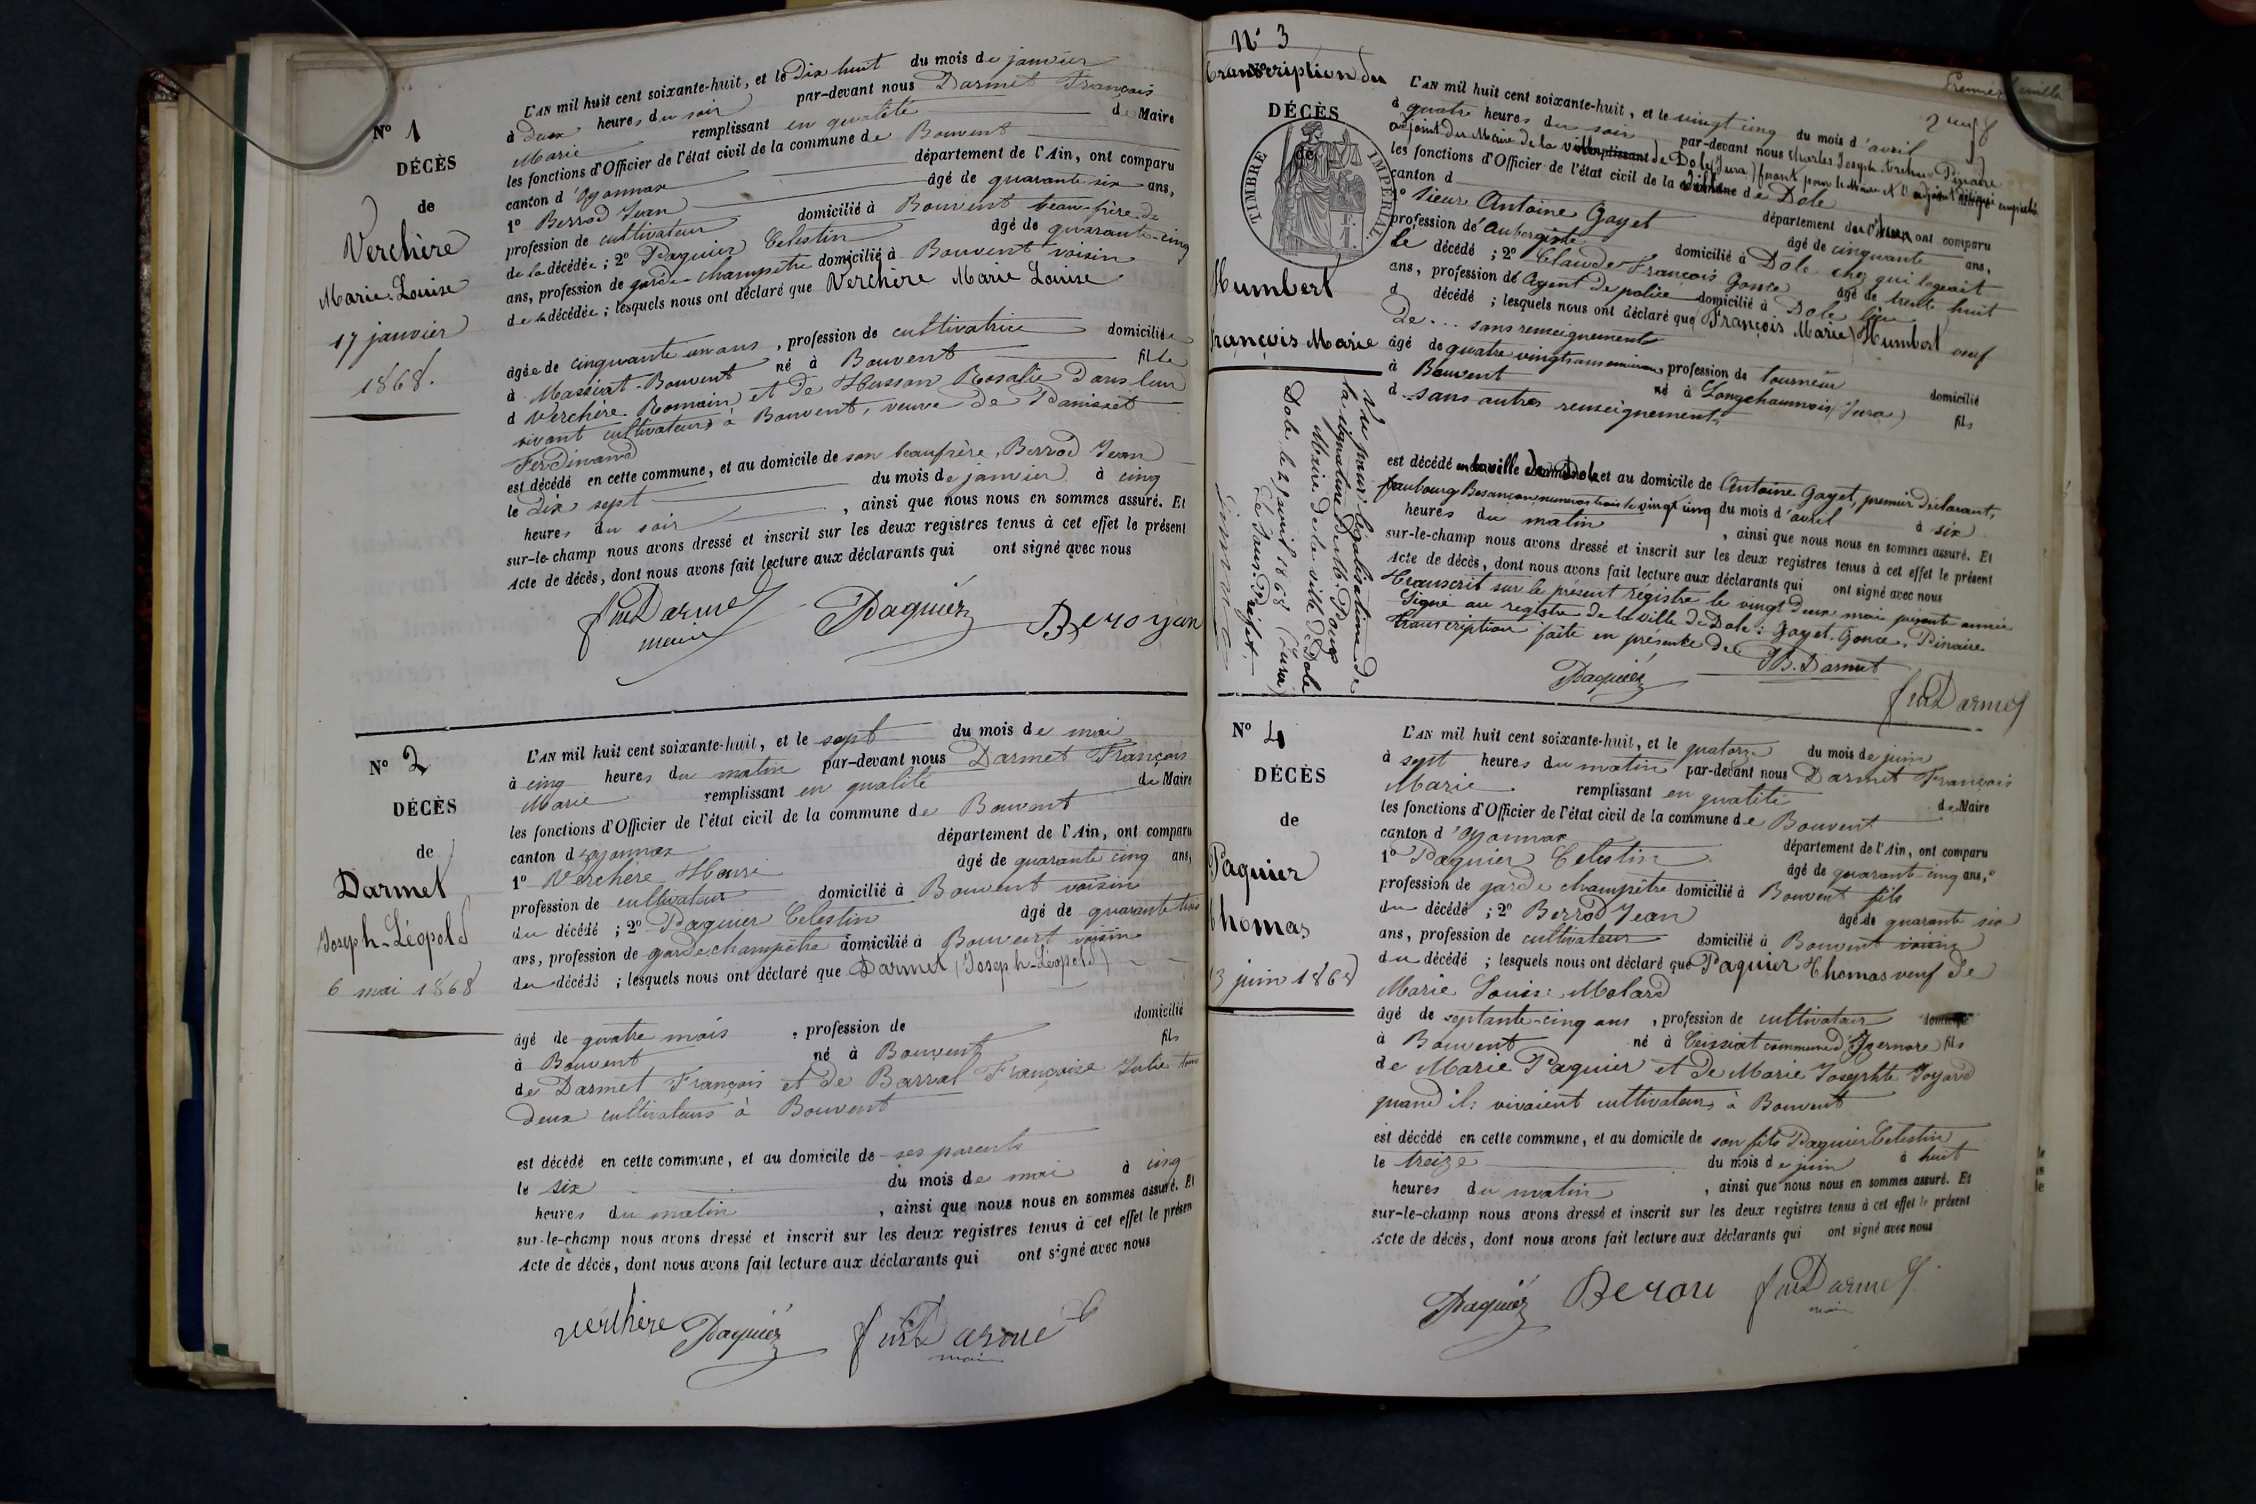 N° 1
DÉCÈS
de
Verchère
Marie-Louise
17 janvier
1868.
L'AN mil huit cent soixante-huit, et le Dix huit du mois de janvier
à Deux heures du soir par-devant nous Darmet François
Marie remplissant en qualité de Maire
les fonctions d'Officier de l'état civil de la commune de Bouvent
canton d'Oyonnax département de l'Ain, ont comparu
1° Berrod Jean âgé de quarante six ans,
profession de cultivateur domicilié à Bouvent beau-frère de
de la décédée ; 2° Paquier Celestin âgé de quarante-cinq
ans, profession de garde-champêtre domicilié à Bouvent voisin
de la décédée ; lesquels nous ont déclaré que Verchère Marie Louise
âgée de cinquante un ans, profession de cultivatrice domiciliée
à Massiat-Bouvent né à Bouvent fille
d Verchère Romain et de Husson Rosalie Dans leur
vivant cultivateurs à Bouvent, veuve de Panisset
Ferdinand
est décédé en cette commune, et au domicile de son beaufrère, Berrod Jean
le dix sept du mois de janvier à cinq
heures du soir, ainsi que nous nous en sommes assuré. Et
sur-le-champ nous avons dressé et inscrit sur les deux registres tenus à cet effet le présent
Acte de décès, dont nous avons fait lecture aux déclarants qui ont signé avec nous
Darmet Paquier
maire
N° 2
DÉCÈS
de
Darmet
Joseph-Léopold
6 mai 1868
L'AN mil huit cent soixante-huit, et le sept du mois de mai
à cinq heures du matin par-devant nous Darmet François
Marie remplissant en qualité de Maire
les fonctions d'Officier de l'état civil de la commune de Bouvent
canton d'oyonnax département de l'Ain, ont comparu
1° Verchère Henri âgé de quarante cinq ans,
profession de cultivateur domicilié à Bouvent voisin
du décédé ; 2° Paquier Celestin âgé de quarante trois
ans, profession de garde champêtre domicilié à Bouvent voisin
du décédé ; lesquels nous ont déclaré que Darmet (Joseph-Léopold)
âgé de quatre mois, profession de domicilié
à Bouvent né à Bouvent fils
de Darmet François et de Barral Françoise Julie tous
deux cultivateurs à Bouvent
est décédé en cette commune, et au domicile de ses parents
le six du mois de mai à cinq
heures du matin, ainsi que nous nous en sommes assuré. Et
sur-le-champ nous avons dressé et inscrit sur les deux registres tenus à cet effet le présen
Acte de décès, dont nous avons fait lecture aux déclarants qui ont signé avec nous
verchère Paquier Darmet
maire
N° 3
Transcription du
DÉCÈS
de
TIMBRE IMPÉRIAL
Humbert
François Marie
Vu pour légalisation de
la signature de M.
Maire de la ville de Dole
Dole, le 29 avril 1868 (Jura)
Le Sous-Préfet
L'AN mil huit cent soixante-huit, et le vingt cinq du mois d'avril
à quatre heures du soir par-devant nous Charles Joseph Pinaire
adjoint du Maire de la ville remplissant de Dole (Jura)
les fonctions d'Officier de l'état civil de la ville de Dole
canton d département de l'Ain, ont comparu
1° Sieur Antoine Gayet âgé de cinquante ans,
profession d'Aubergiste domicilié à Dole chez qui logeait
le décédé ; 2° Claude François Gonce âgé de trente huit
ans, profession de Agent de police domicilié à Dole
d décédé ; lesquels nous ont déclaré que (François Marie) Humbert veuf
De... sans renseignements
âgé de quatre vingts ans environ, profession de tourneur domicilié
à Bouvent né à Longchaumois (Jura) fils
d sans autres renseignements
est décédé en la ville de Dole et au domicile de Antoine Gayet, premier déclarant,
faubourg Besançon numéro trois le vingt cinq du mois d'avril à six
heures du matin, ainsi que nous nous en sommes assuré. Et
sur-le-champ nous avons dressé et inscrit sur les deux registres tenus à cet effet le présent
Acte de décès, dont nous avons fait lecture aux déclarants qui ont signé avec nous
Transcrit sur le présent registre le vingt deux mai présente année
Signé au registre de la ville de Dole : Gayet. Gonce. Pinaire
transcription faite en présence de JB. Darmet
Paquier Darmet
N° 4
DÉCÈS
de
Paquier
Thomas
13 juin 1868
L'AN mil huit cent soixante-huit, et le quatorze du mois de juin
à sept heures du matin par-devant nous Darmet François
Marie remplissant en qualité de Maire
les fonctions d'Officier de l'état civil de la commune de Bouvent
canton d'Oyonnax département de l'Ain, ont comparu
1° Paquier Celestin âgé de quarante-cinq ans,
profession de garde champêtre domicilié à Bouvent fils
du décédé ; 2° Berrod Jean âgé de quarante six
ans, profession de cultivateur domicilié à Bouvent voisin
du décédé ; lesquels nous ont déclaré que Paquier Thomas veuf de
Marie Louise Molard
âgé de septante-cinq ans, profession de cultivateur domicilié
à Bouvent né à Ceissiat commune d'Izernore fils
de Marie Paquier et de Marie Josephte Joyard
quand ils vivaient cultivateurs à Bouvent
est décédé en cette commune, et au domicile de son fils Paquier Celestin
le treize du mois de juin à huit
heures du matin, ainsi que nous nous en sommes assuré. Et
sur-le-champ nous avons dressé et inscrit sur les deux registres tenus à cet effet le présent
Acte de décès, dont nous avons fait lecture aux déclarants qui ont signé avec nous
Paquier Berou Darmet
maire